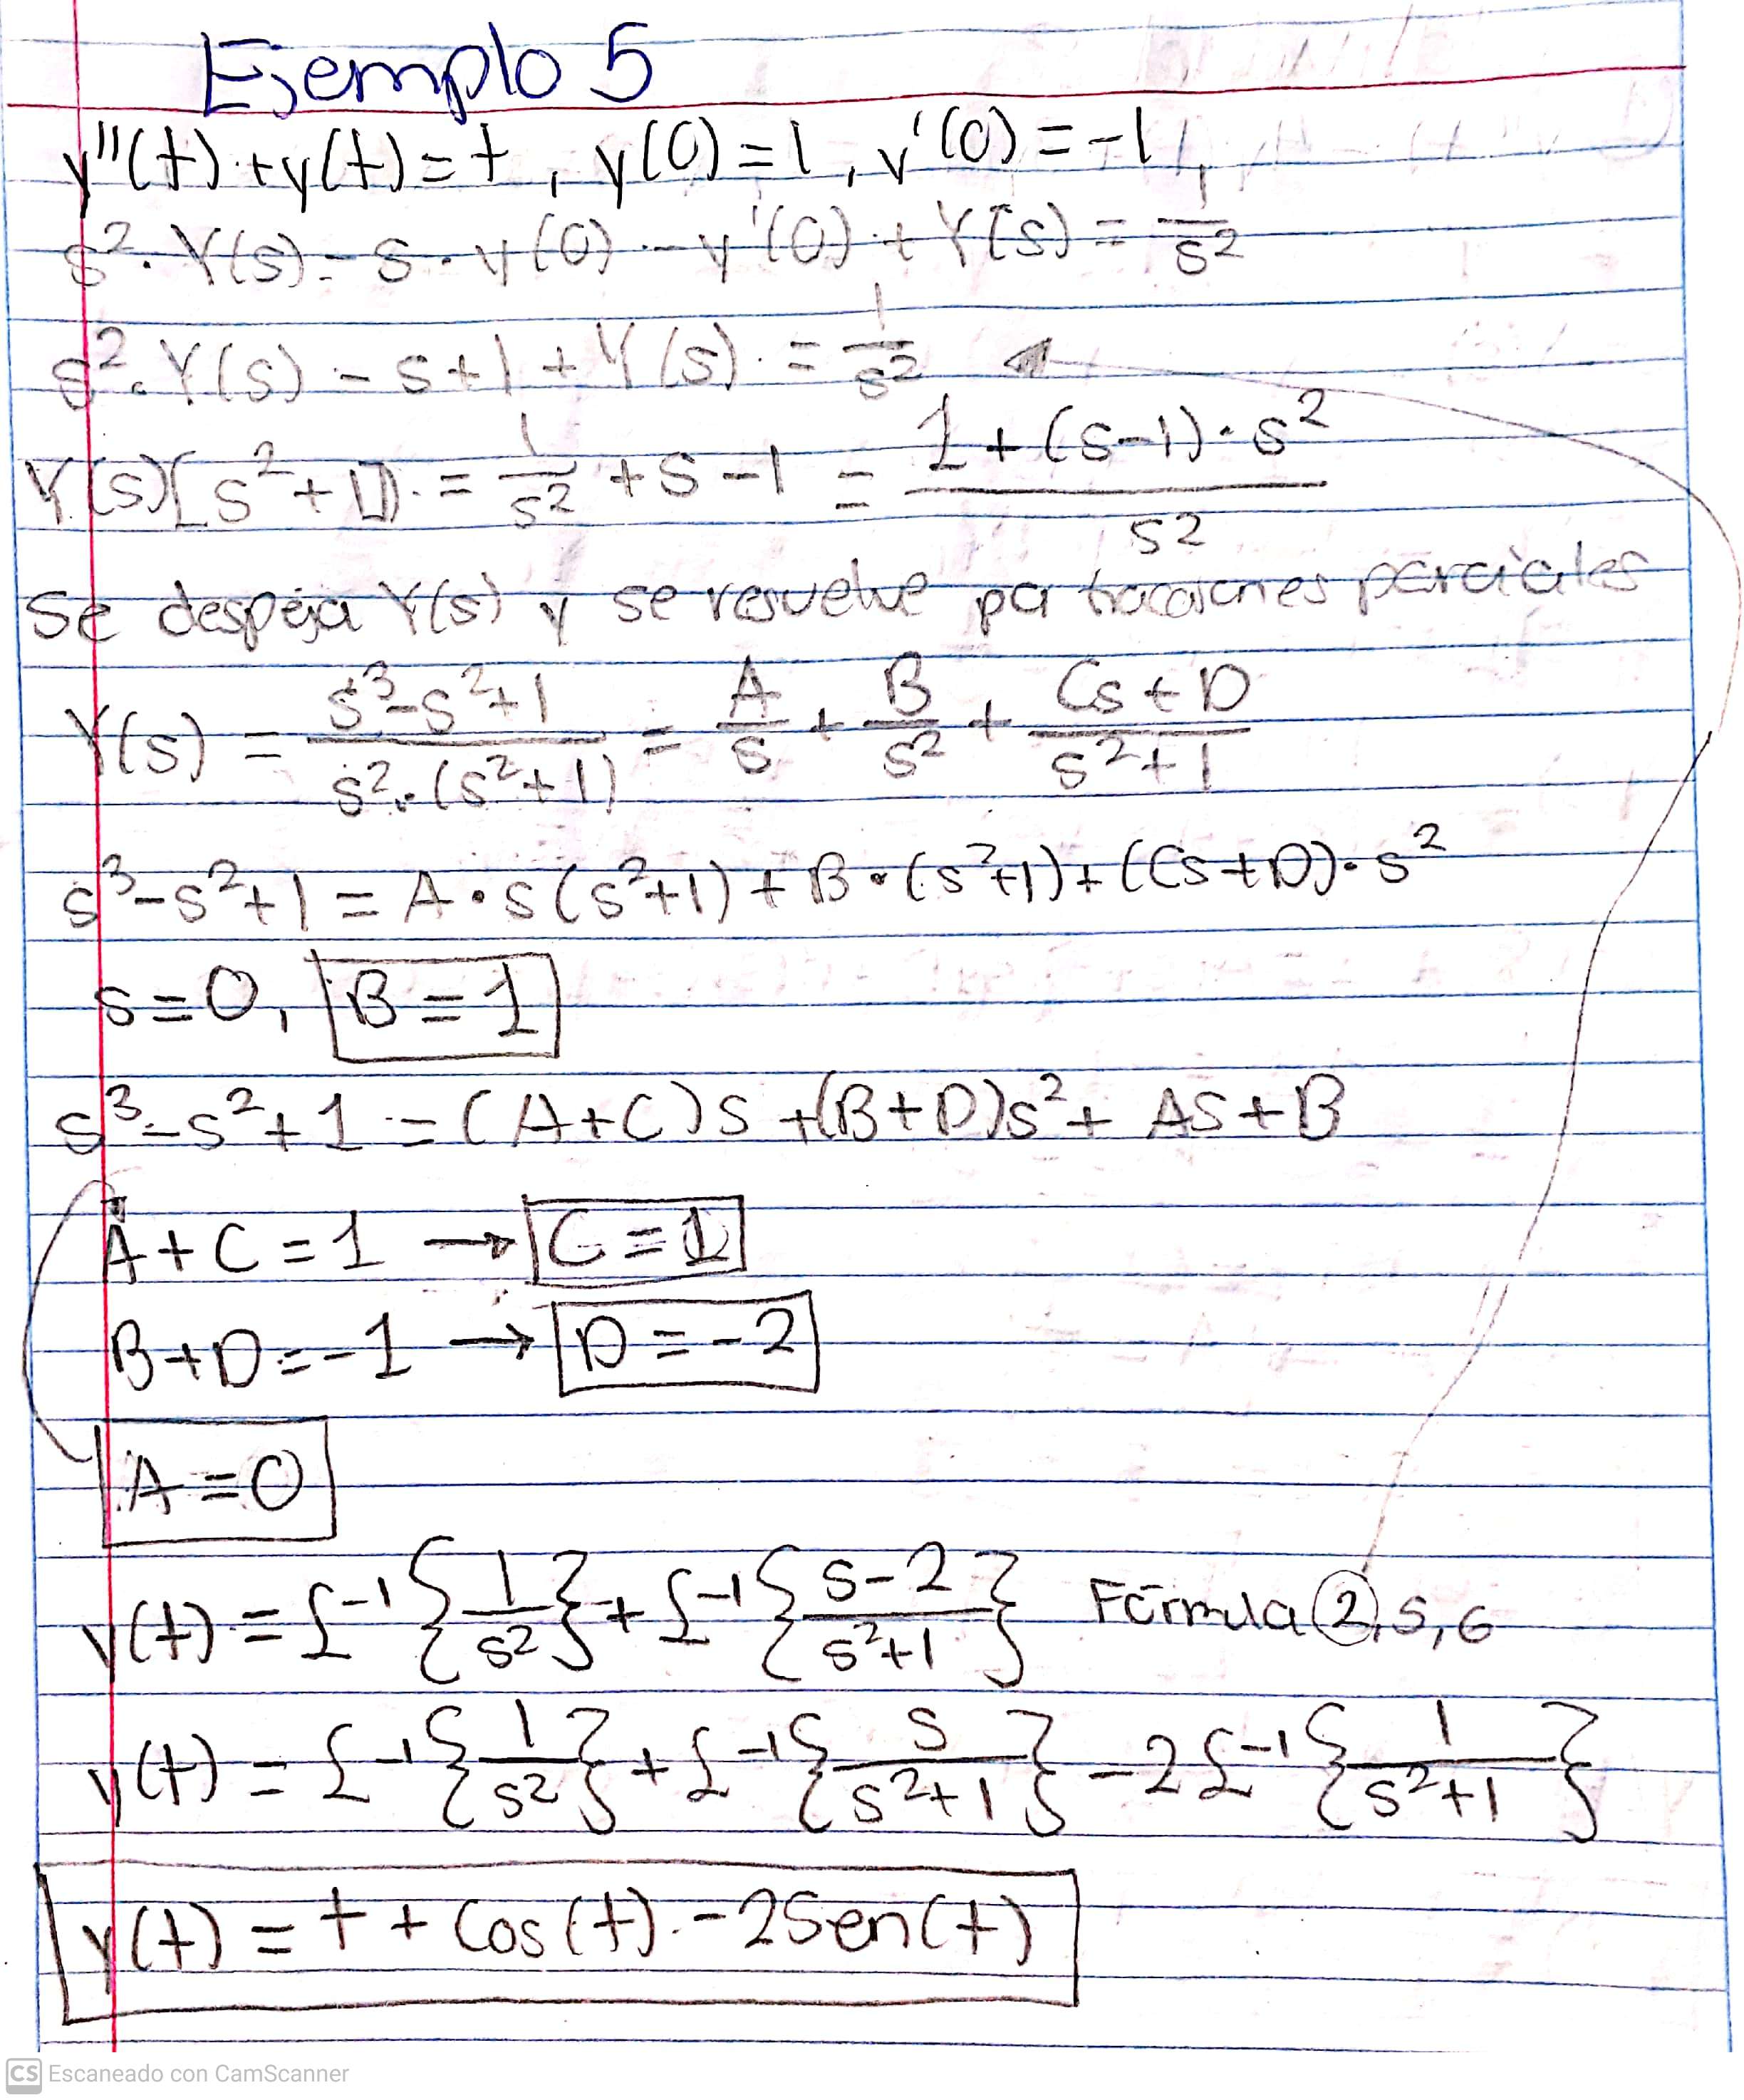 Ejemplo 5
y''(t)+y(t)=t, y(0)=1, y'(0)=-1,
s²·Y(s)-s·y(0)-y'(0)+Y(s)=1/s²
s²·Y(s)-s+1+Y(s)=1/s²
Y(s)[s²+1]=1/s²+s-1=(1+(s-1)·s²)/s²
Se despeja Y(s) y se resuelve por fracciones parciales
Y(s)=(s³-s²+1)/(s²·(s²+1))=A/s+B/s²+(Cs+D)/(s²+1)
s³-s²+1=A·s(s²+1)+B·(s²+1)+(Cs+D)·s²
s=0, B=1
s³-s²+1=(A+C)s+(B+D)s²+As+B
A+C=1 → C=1
B+D=-1 → D=-2
A=0
y(t)=£⁻¹{1/s²}+£⁻¹{(s-2)/(s²+1)} Fórmula 2,5,6
y(t)=£⁻¹{1/s²}+£⁻¹{s/(s²+1)}-2£⁻¹{1/(s²+1)}
y(t)=t+Cos(t)-2Sen(t)
CS Escaneado con CamScanner